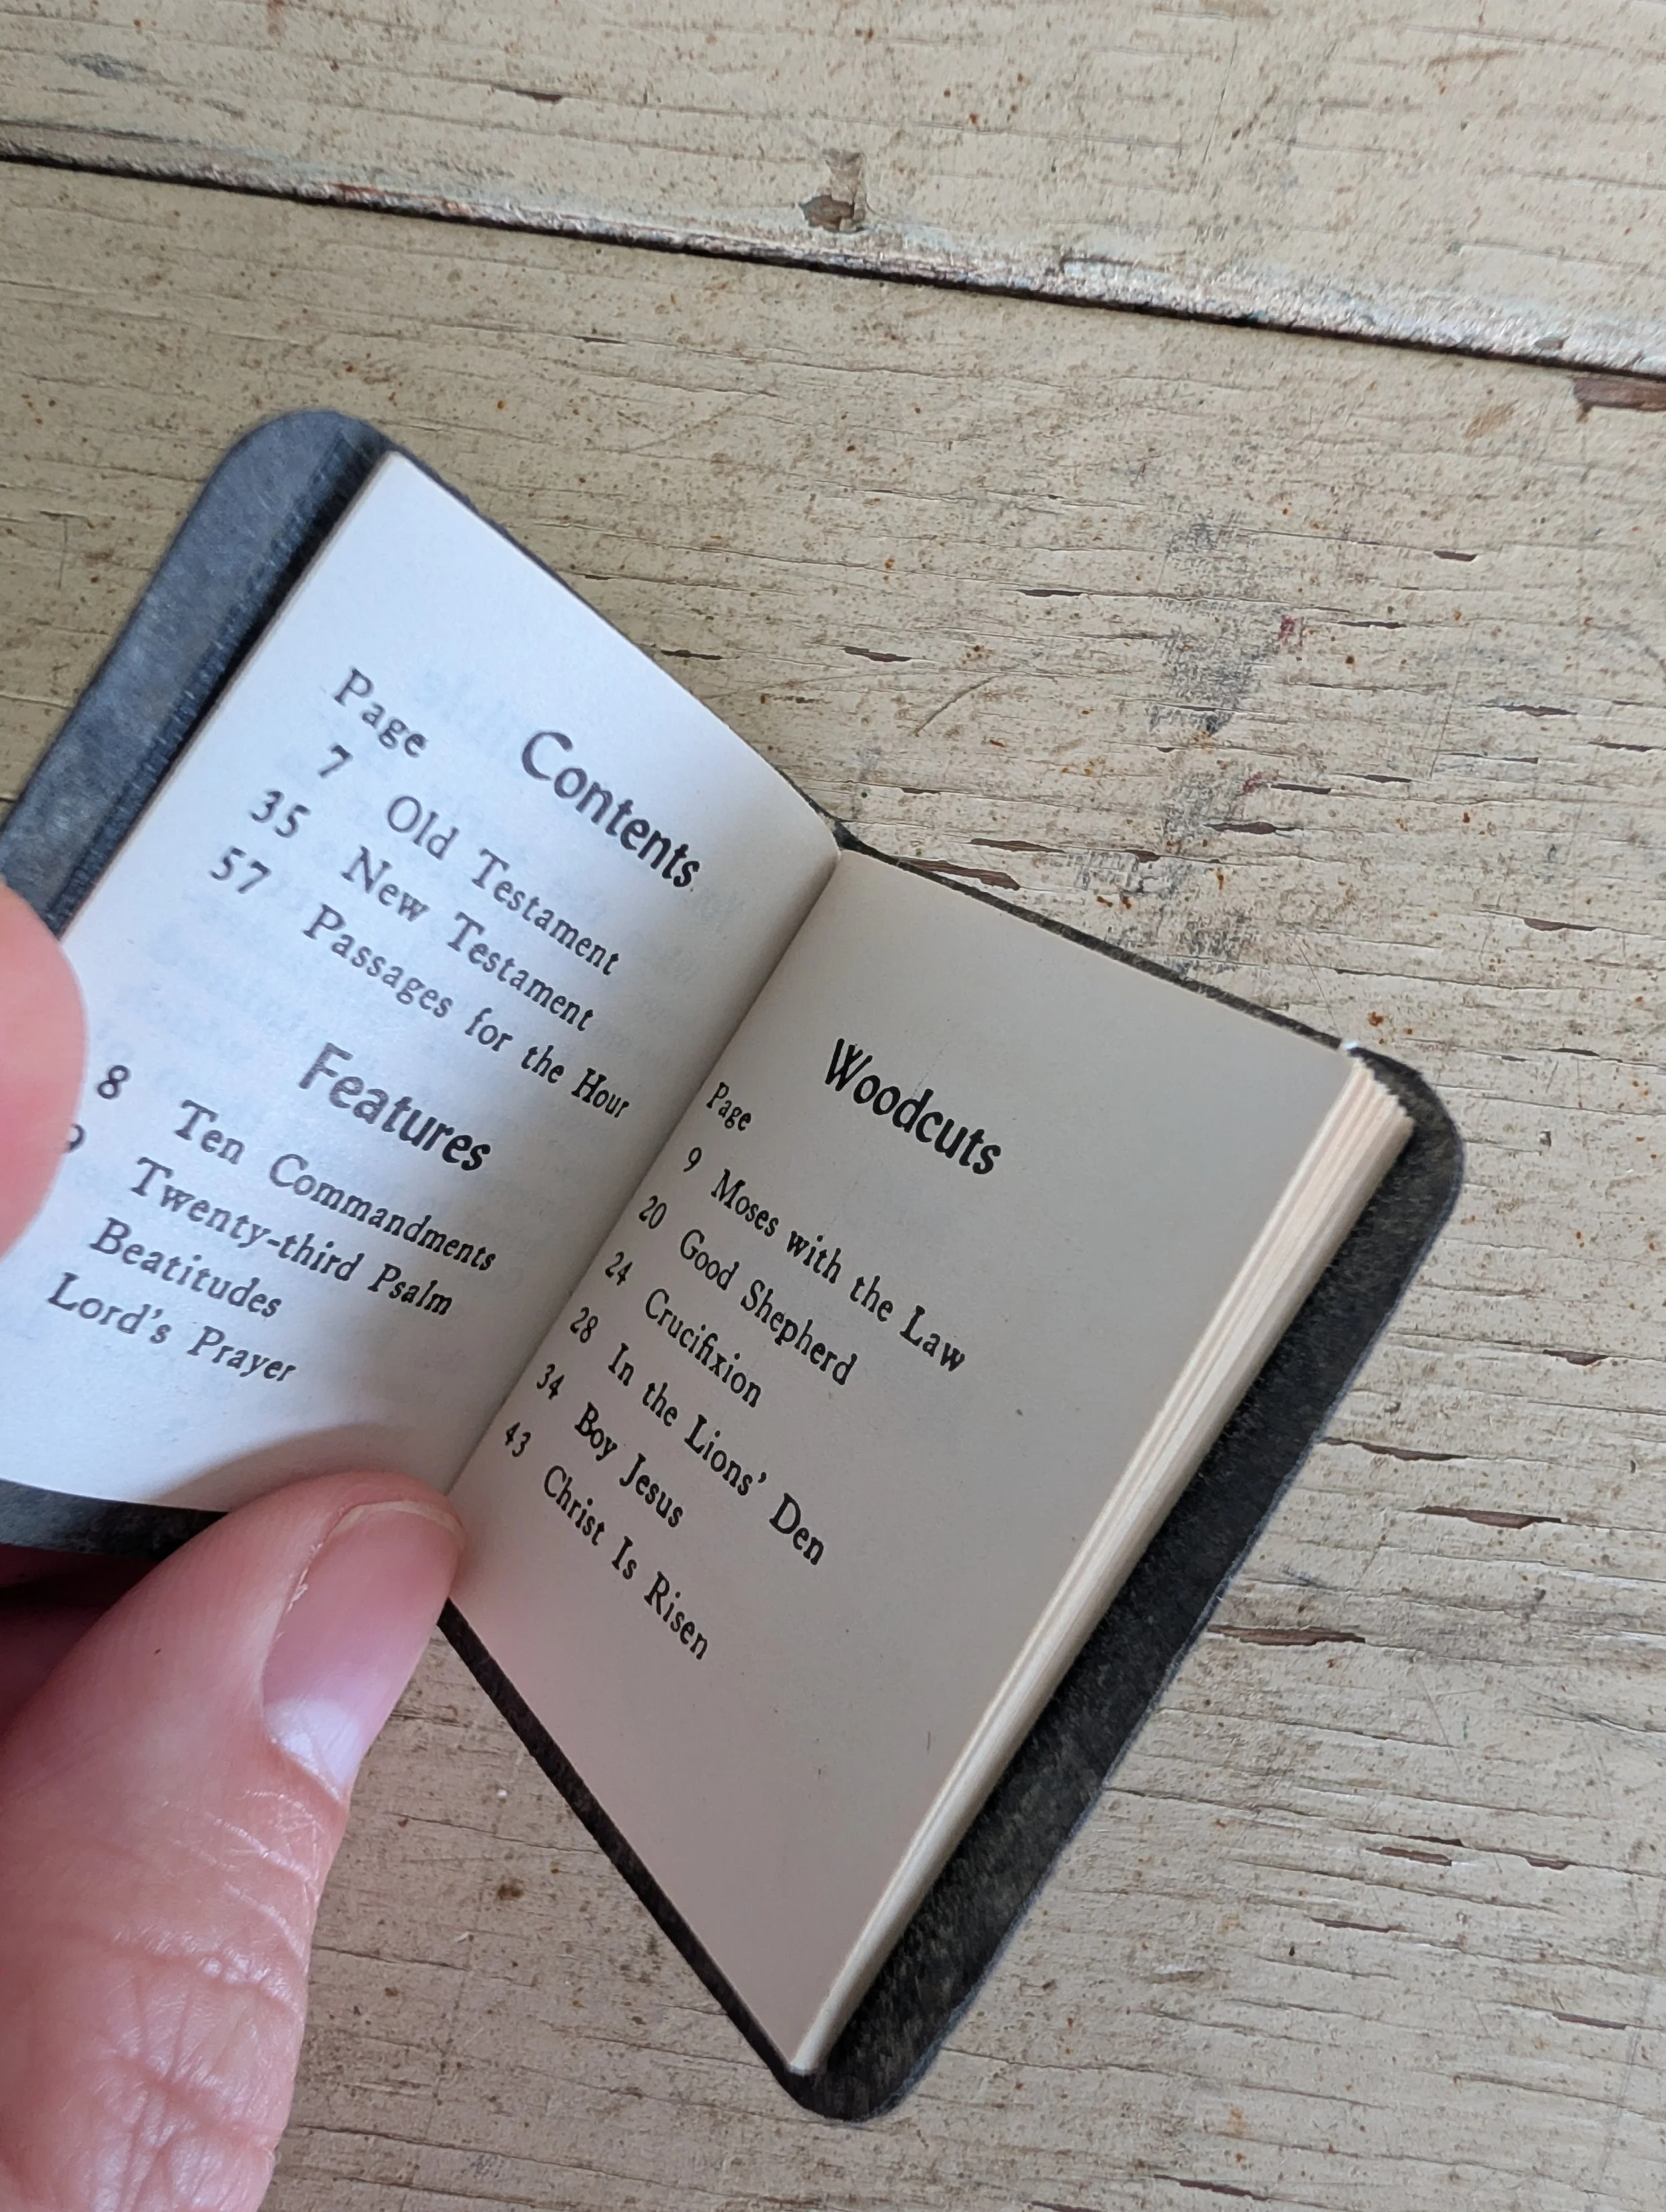 Contents
Page
7 Old Testament
35 New Testament
57 Passages for the Hour
Features
8 Ten Commandments
Twenty-third Psalm
Beatitudes
Lord's Prayer
Woodcuts
Page
9 Moses with the Law
20 Good Shepherd
24 Crucifixion
28 In the Lions' Den
34 Boy Jesus
43 Christ Is Risen